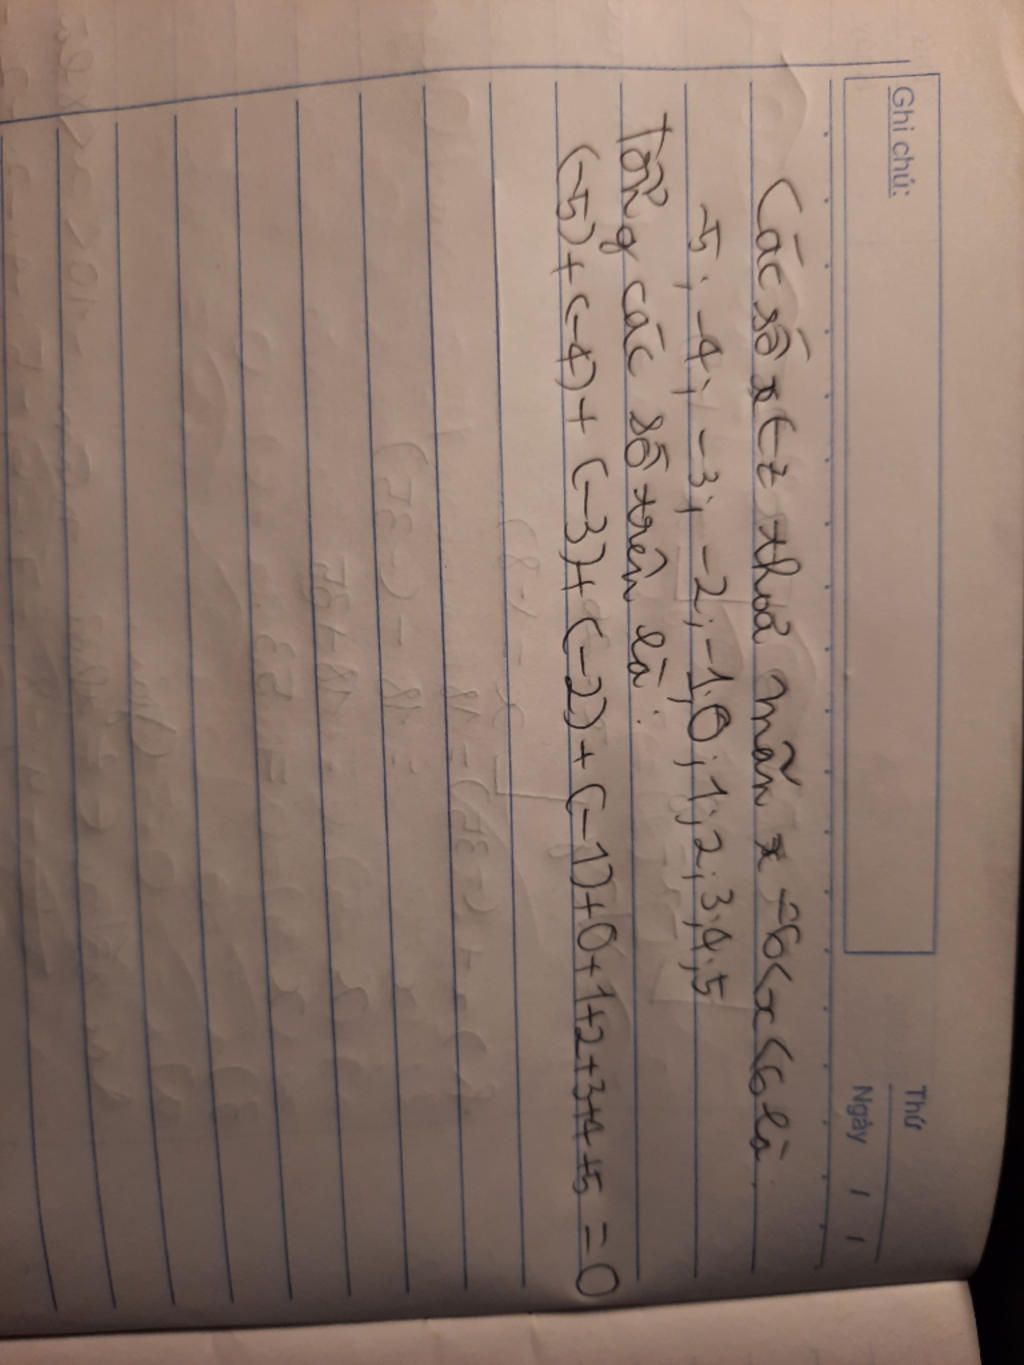 Ghi chú:
Thứ
Ngày / /
Các số x∈z thoả mãn x -6<x<6 là
-5; -4; -3; -2; -1; 0; 1; 2; 3; 4; 5
Tổng các số trên là:
(-5)+(-4)+(-3)+(-2)+(-1)+0+1+2+3+4+5=0